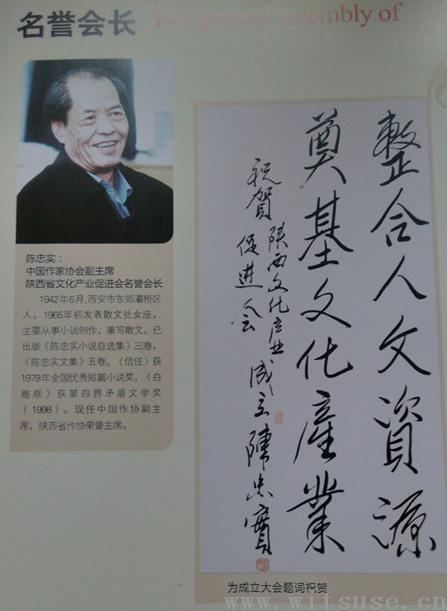 名誉会长
The general assembly of
陈忠实：
中国作家协会副主席
陕西省文化产业促进会名誉会长
1942年6月,西安市东郊灞桥区
人。1965年初发表散文处女座,
主要从事小说创作，兼写散文。已
出版《陈忠实小说自选集》三卷，
《陈忠实文集》五卷。《信任》获
1979年全国优秀短篇小说奖，《白
鹿原》获第四界矛盾文学奖
（1998）。现任中国作协副主
席，陕西省作协荣誉主席。
整合人文資源
奠基文化產業
祝賀陕西文化产业
促进会
成立 陳忠實
为成立大会题词祝贺
www.witsuse.cn